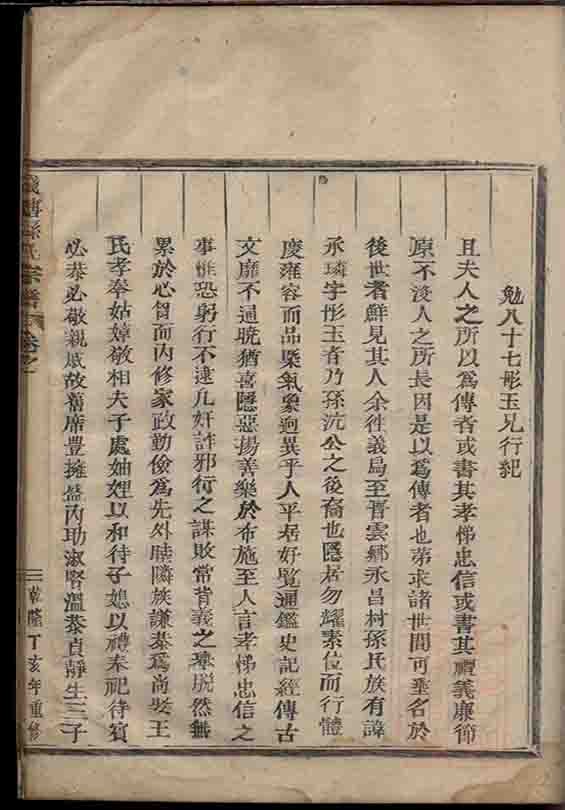 勉八十七彤玉兄行紀
且夫人之所以為傳者或書其孝悌忠信或書其禮義廉節
原不沒人之所長因是以為傳者也苐求諸世間可垂名於
後世者鮮見其人余徃義烏至晋雲鄉永昌村孫氏族有諱
承璘字彤玉者乃孫沆公之後裔也隱居勿耀素位而行體
度雍容而品槩氣象迥異乎人平居好覧通鑑史記經傳古
文靡不通曉猶喜隱惡揚善樂於布施至人言孝悌忠信之
事惟恐躬行不逮凡奸詐邪行之謀敗常背義之舉脫然無
累於心胷而內修家政勤儉為先外睦隣族謙恭為尚娶王
氏孝奉姑嫜敬相夫子處妯娌以和待子媳以禮奉祀待賓
必恭必敬親戚故舊席豊擁盛內助淑賢溫恭貞靜生三子
孫氏宗譜 卷之一
乾隆丁亥年重修